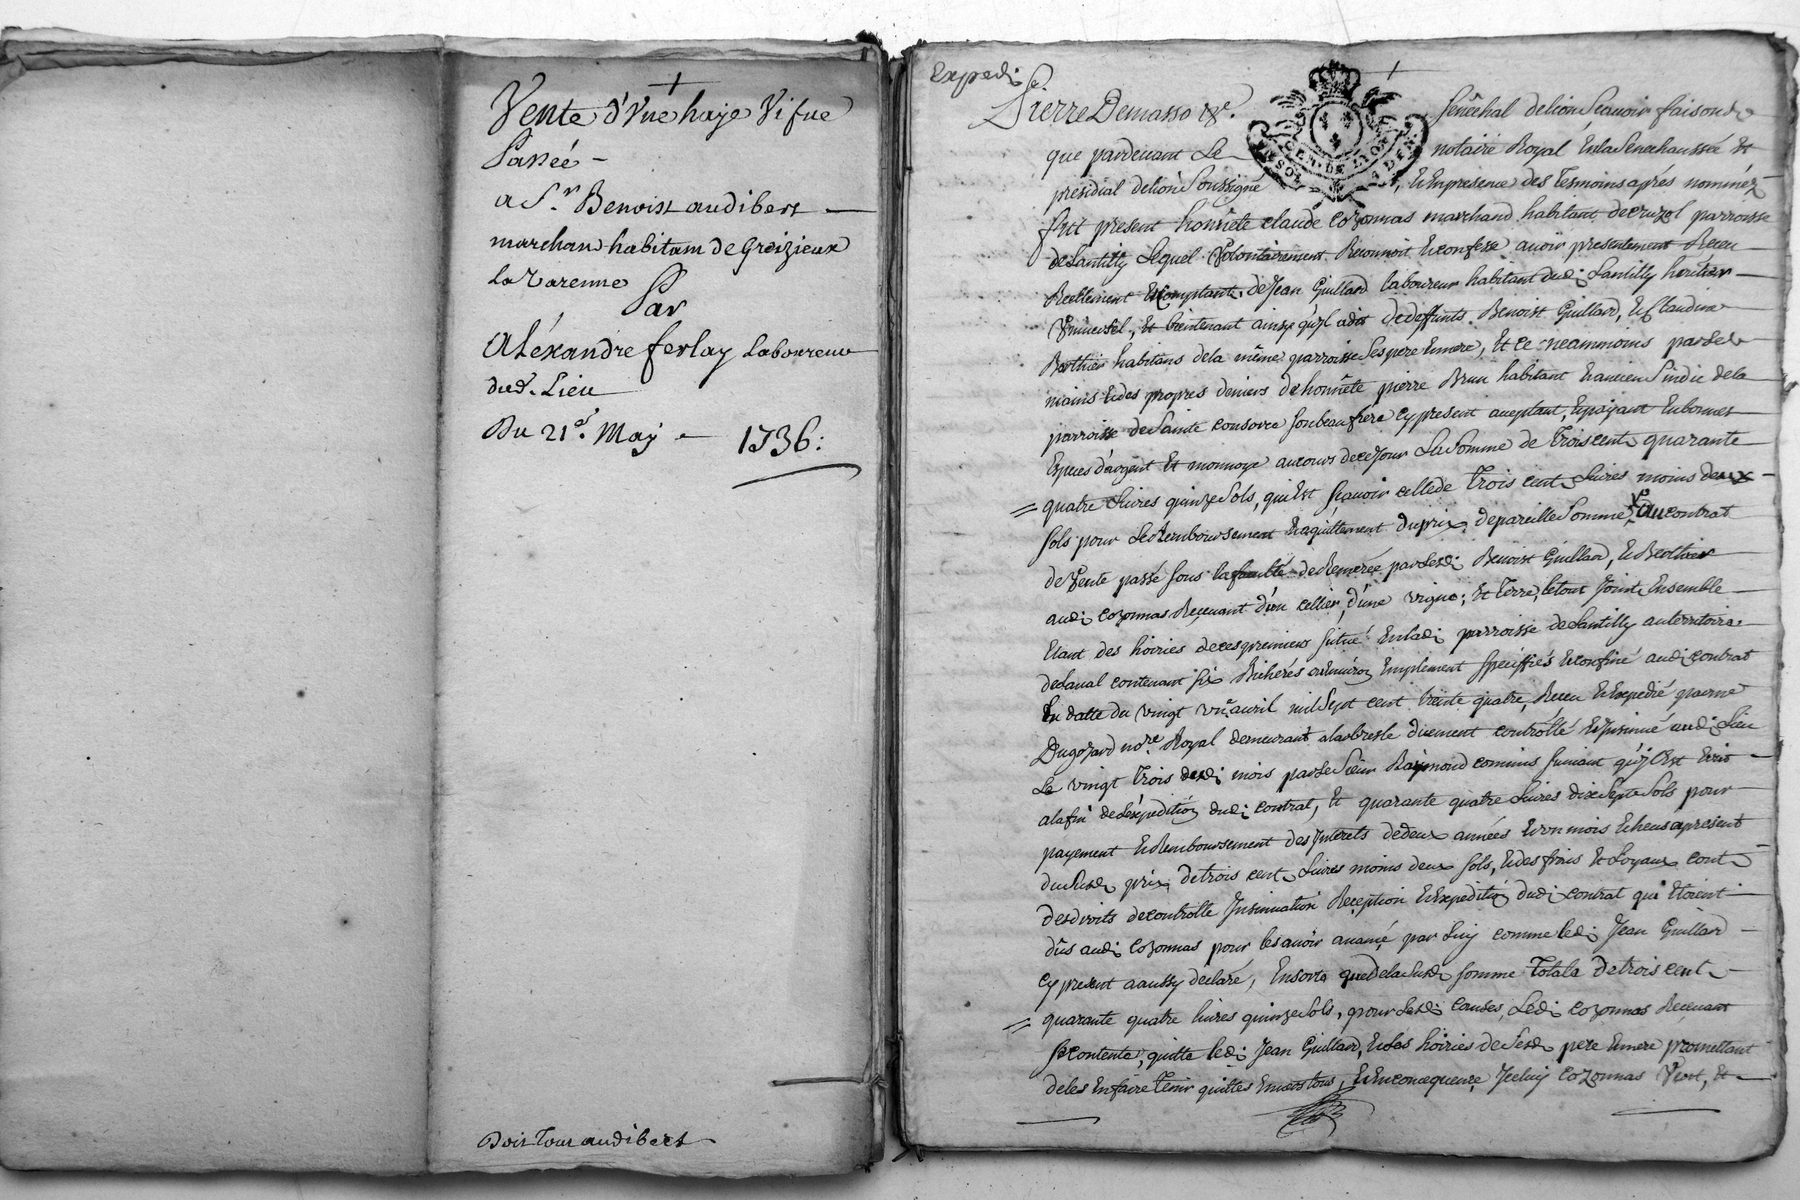 Vente d'Vne haye Vifue
Passée
a Sr. Benoist audibert
marchand habitant de Greizieux
La Varenne
Par
Aléxandre ferlay Laboureur
dud. Lieu
Du 21e. May 1736:
Doit Tour audibert
Expedi
Pierre Demasso &c. Senêchal delion Scauoir faisons
que pardeuant Le notaire Royal En la Senechaussée Et
GEN. DE LYON
presidial delion Soussigné, Et En presence des Tesmoins aprés nommêz
fut present honnête claude cozonnas marchand habitant decruzol parroisse
de Santilly Lequel Volontairement Reconnoit Et confesse auoir presentement Receu
Reellement Et Comptant, de Jean Guillard laboureur habitant dudi Santilly heritier
Vniuersel, Et bientenant ainsy qu'yl a dit de deffunts Benoist Guillard, Et Claudine
Berthier habitans dela même parroisse Ses pere Et mere, Et ce neammoins par les
mains Et des propres deniers de honnête pierre Brun habitant Et ancien Sindic dela
parroisse de Sainte consorce Son beaufrere cy present aceptant, Et payant En bonnes
Especes d'argent Et monnoye au cours de ce Jour La Somme de Trois cent quarante
quatre Liures quinze Sols, qui Est Scauoir celle de Trois cent Liures moins deux
Sols pour Le Remboursement Et aquittement du prix de pareille Somme, du contrat
de Vente passé Sous la faculté de Remerée par lesdi Benoist Guillard, Et Berthier
audi cozonnas Receuant d'un cellier, d'une vigne; Et Terre, le tout Joint Ensemble
Etant des hoiries de ces premiers Situé En ladi parroisse de Santilly au territoire
de Laual contenant Six Bicherés Enuiron Emplement Spéciffiés Et confiné audi contrat
En datte du vingt vne. auril mil Sept cent trente quatre, Receu Et Expedié par me
Dugozard nore. Royal demeurant a larbresle düement contrôllé Et Insinué audi Lieu
Le vingt Trois dudi mois par Le Sieur Raymond commis Suiuant qu'yl Est Ecrit
a la fin de L'éxpedition dudi contrat, Et quarante quatre Liures dix Sept Sols pour
payement Et Remboursement des Interets de deux années Et vn mois Echeus a present
du Susdi prix de trois cent Liures moins deux Sols, Et des frais Et Loyaux cout
des droits de controlle Insinuation Reception Et Expedition dudi contrat qui Etoient
dûs audi cozonnas pour les auoir auancé par Luy comme ledi Jean Guillard
cy present a aussy declaré, En sorte que de la Susdi Somme Totale de trois cent
quarante quatre liures quinze Sols, pour lesdi causes, Ledi cozonnas Receuant
Se contente, quitte ledi Jean Guillard, Et les hoiries de Sesdi pere Et mere promettant
de les En faire Tenir quittes Enuers tous, Et En consequence Jceluy cozonnas Veut, Et